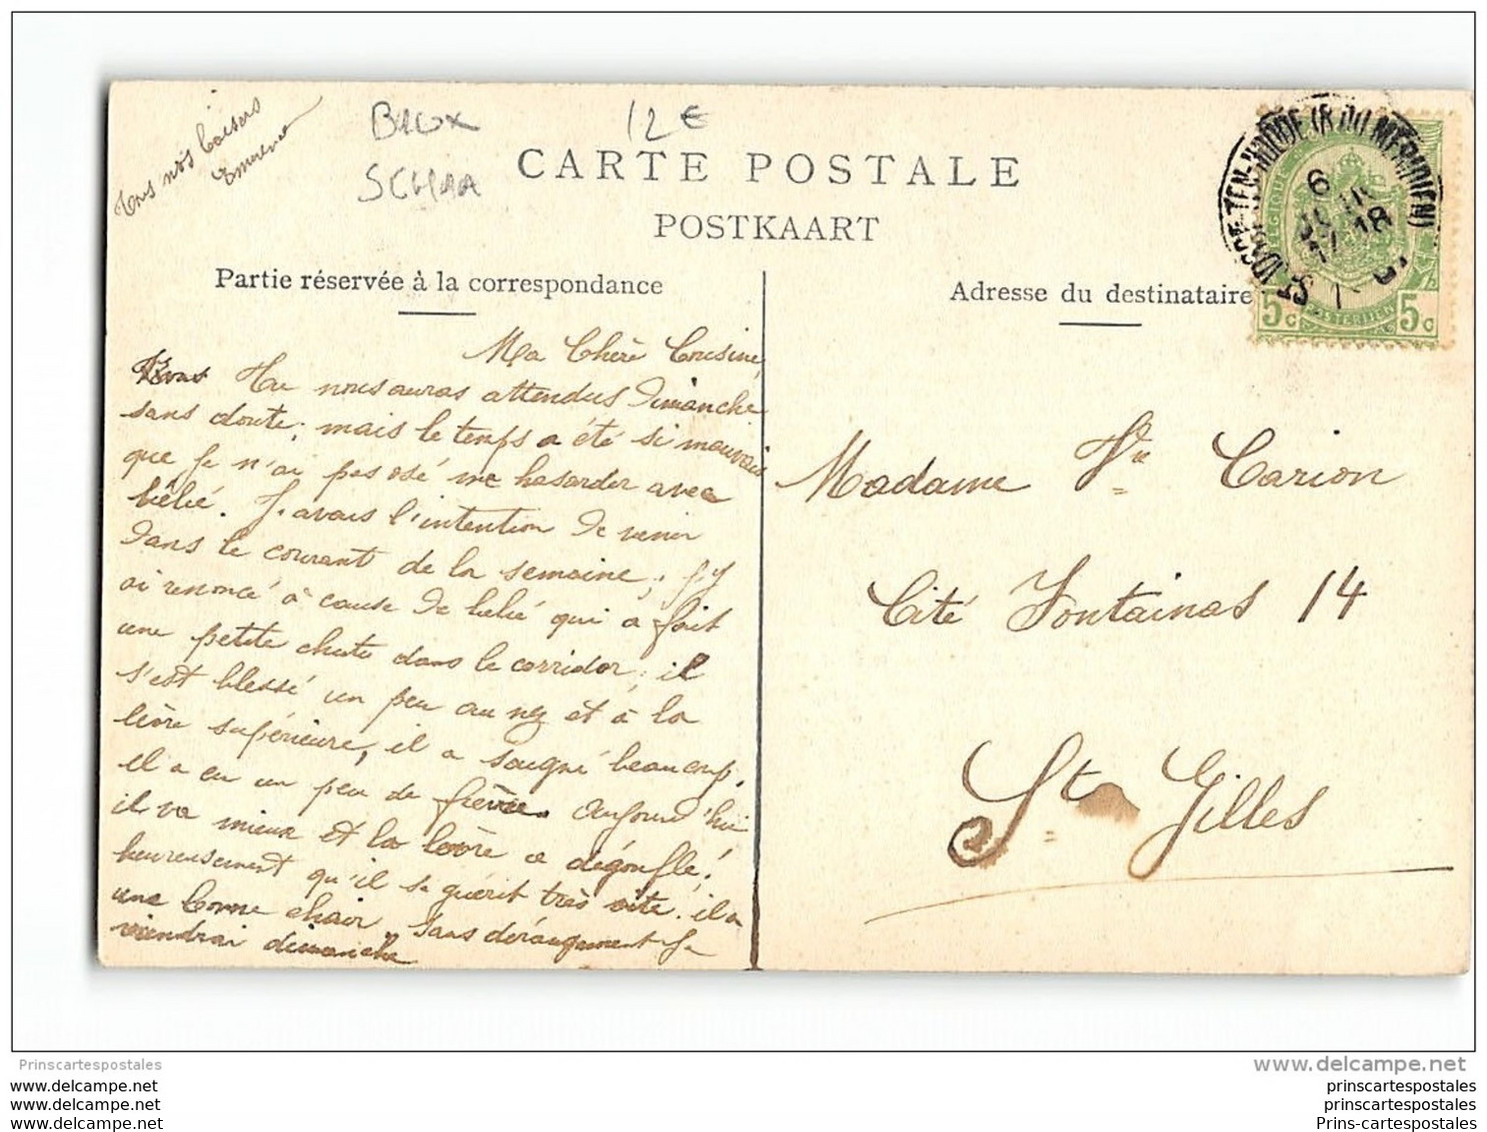 Tous nos baisers
BRUX
SCHAA
12€
CARTE POSTALE
POSTKAART
Partie réservée à la correspondance
Adresse du destinataire
ST JOSSE-TEN-NOODE (R. DU MÉRIDIEN)
6
JUIN
17-18
5c
5c
Ma Chère Cousine
Tu nous auras attendus dimanche
sans doute; mais le temps a été si mauvais
que je n'ai pas osé me hasarder avec
bébé. J'avais l'intention de venir
dans le courant de la semaine; j'y
ai renoncé à cause de bébé qui a fait
une petite chute dans le corridor; il
s'est blessé un peu au nez et à la
lèvre supérieure, il a saigné beaucoup,
il a eu un peu de fièvre. Aujourd'hui
il va mieux et la lèvre a dégonflé!
heureusement qu'il se guérit très vite. il a
une bonne chair. Sans dérangement je
viendrai dimanche
Madame Ve Carion
Cité Fontainas 14
St Gilles
Prinscartespostales
www.delcampe.net
www.delcampe.net
www.delcampe.net
www.delcampe.net
prinscartespostales
prinscartespostales
Prins-cartespostales